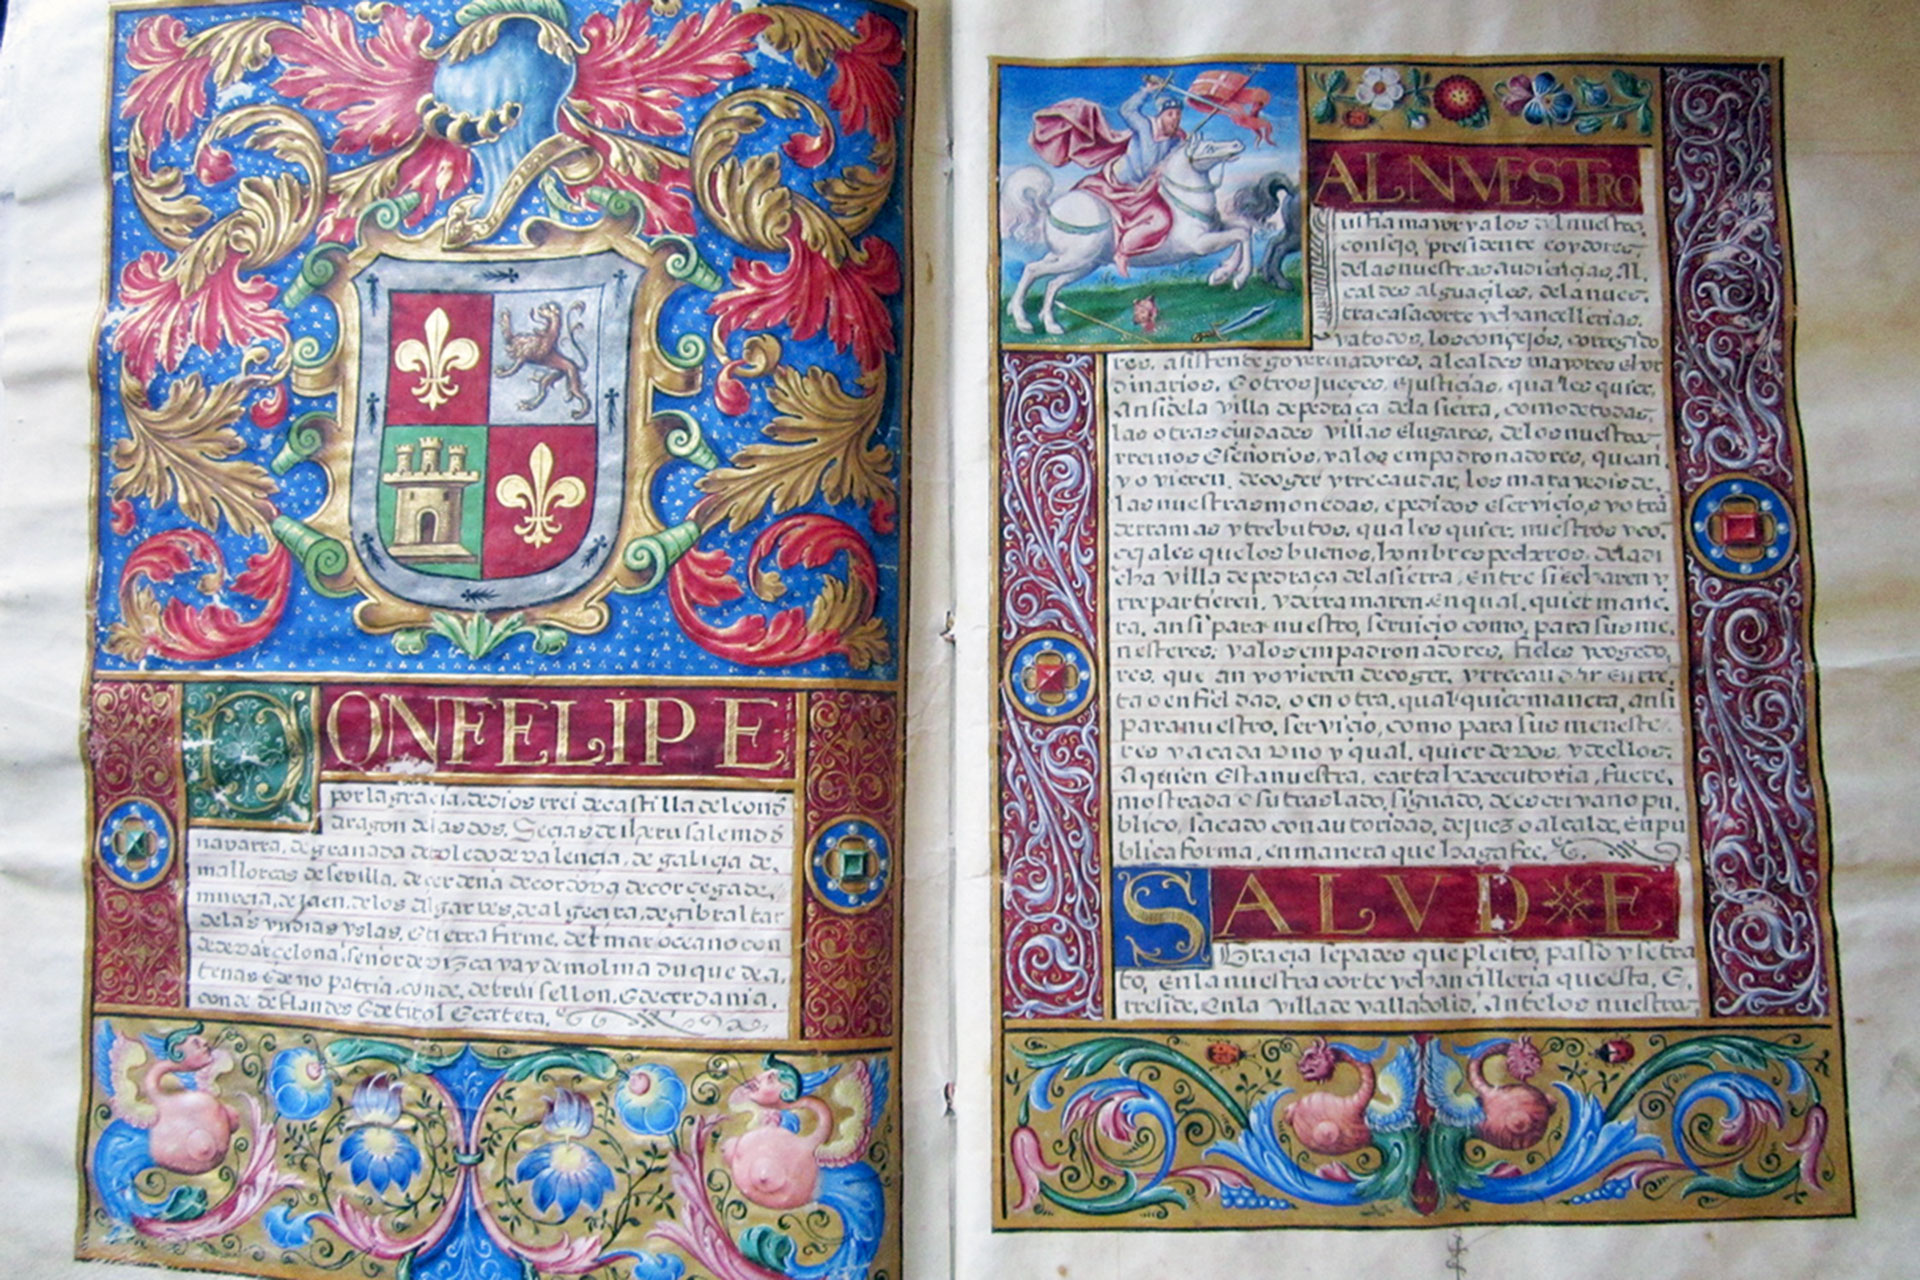 DON FELIPE
por la gracia, de dios rrei de castilla de leon d
aragon de las dos, Secias de iherusalem d
navarra, de granada de toledo de valencia, de galicia de,
mallorcas de sevilla, de cerdeña de cordova de corcega de,
murcia, de jaen, de los algarves, de algecira, de gibraltar
de las yndias yslas, E tierra firme, del mar oceano con
de de varcelona, señor de vizcaya y de molina duque de a,
tenas E de no patria, conde, de rruisellon, E de cerdania,
conde de flandes E de tirol E cetera,
AL NVESTRO
justicia mayor y a los del nuestro,
consejo, presidente e oydores,
de las nuestras audiencias, Al,
caldes alguaciles, de la nues,
tra casa corte y chancellerias,
y a todos, los concejos, corregido
res, asistente governadores, alcaldes mayores e or
dinarios, E otros jueces, E justicias, quales quier,
Ansi de la villa de pedraça de la sierra, como de todas,
las otras ciudades villas E lugares, de los nuestros
rreinos E señorios, y a los empadronadores, que an,
y o vieren, de coger y rrecaudar, los maravedis de,
las nuestras monedas, e pedidos e servicios y otra
derramas y tributos, quales quier, nuestros y co,
cejales que los buenos, hombres pecheros, de la di
cha villa de pedraça de la sierra, Entre si echaren y
rrepartieren, y derramaren en qual, quier mane,
ra, ansi para nuestro, servicio como, para sus me,
nesteres; y a los empadronadores, fieles y cogedo,
res, que an y o vieren de coger, y rrecaudar En rre,
ta o en fieldad, o en otra, qual quier manera, ansi
para nuestro, servicio, como para sus meneste
res y a cada uno y qual, quier de vos, y de ellos,
A quien Esta nuestra, carta Executoria, fuere,
mostrada o su traslado, signado, de escrivano pu,
blico, sacado con autoridad, de juez o alcalde, En pu
blica forma, en manera que haga fee,
SALVD E
Gracia sepades que pleito, passo y se tra
to, En la nuestra corte y chancilleria que esta, E,
rreside, En la villa de valladolid, ante los nuestros